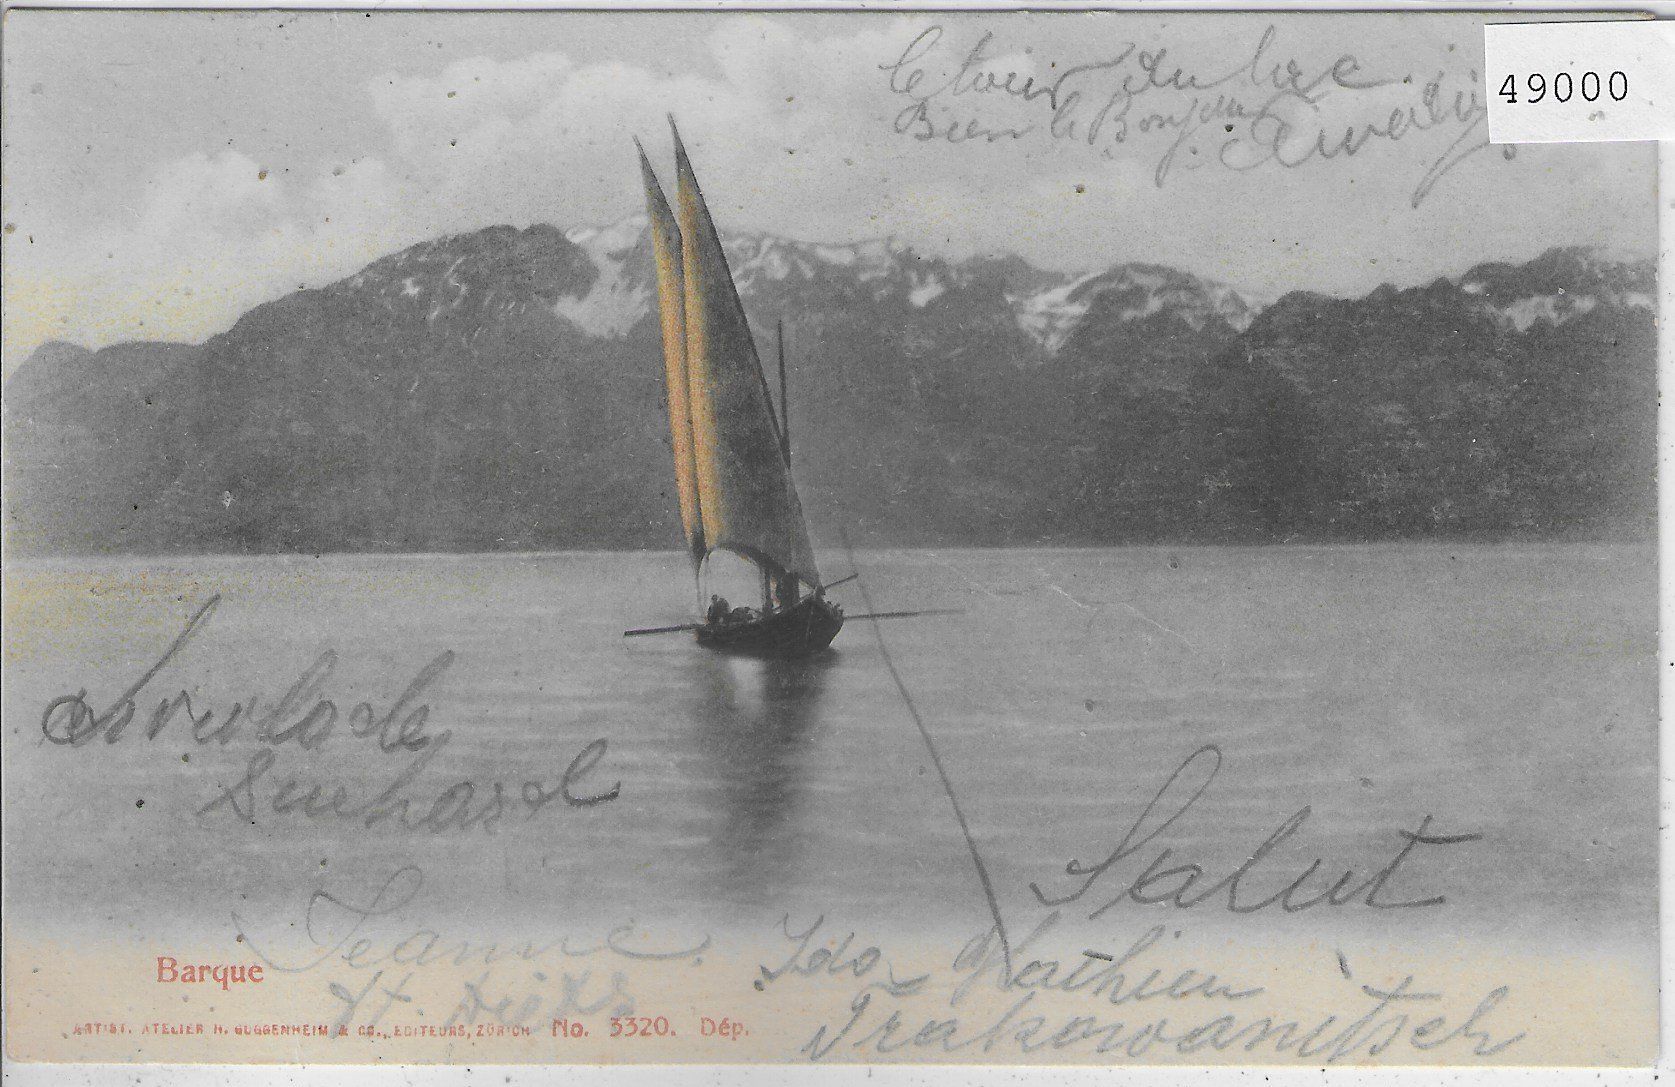 49000
le tour du lac.
Bien le Bonjour
Suchard
Salut
Jeanne
Ida Mathieu
Trakowanitsch
Barque
ARTIST. ATELIER H. GUGGENHEIM & Co., EDITEURS, ZÜRICH No. 3320. Dép.